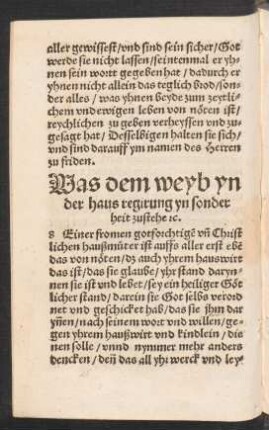 aller gewissest/vnd sind sein sicher/Got
werde sie nicht lassen/seintenmal er yh-
nen sein wort gegeben hat/dadurch er
yhnen nicht allein das teglich brod/son-
der alles/was yhnen beyde zum zeytli-
chem vnd ewigen leben von nöten ist/
reychlichen zu geben verheyssen vnd zu-
gesagt hat/Desselbigen halten sie sich/
vnd sind darauff ym namen des Herren
zu friden.
Was dem weyb yn
der haus regirung yn sonder
heit zustehe ⁊c.
8 Einer fromen gotsförchtigē vñ Christ
lichen haußmůter ist auffs aller erst ebē
das von nöten/dz auch yhrem hauswirt
das ist/das sie glaube/yhr stand daryn-
nen sie ist vnd lebet/sey ein heiliger Göt
licher stand/darein sie Got selbs verord
net vnd geschicket hab/das sie jhm dar
yñen/nach seinem wort vnd willen/ge-
gen yhrem haußwirt vnd kindlein/die
nen solle/vnnd nymmer mehr anders
dencken/deñ das all yhr werck vnd ley-